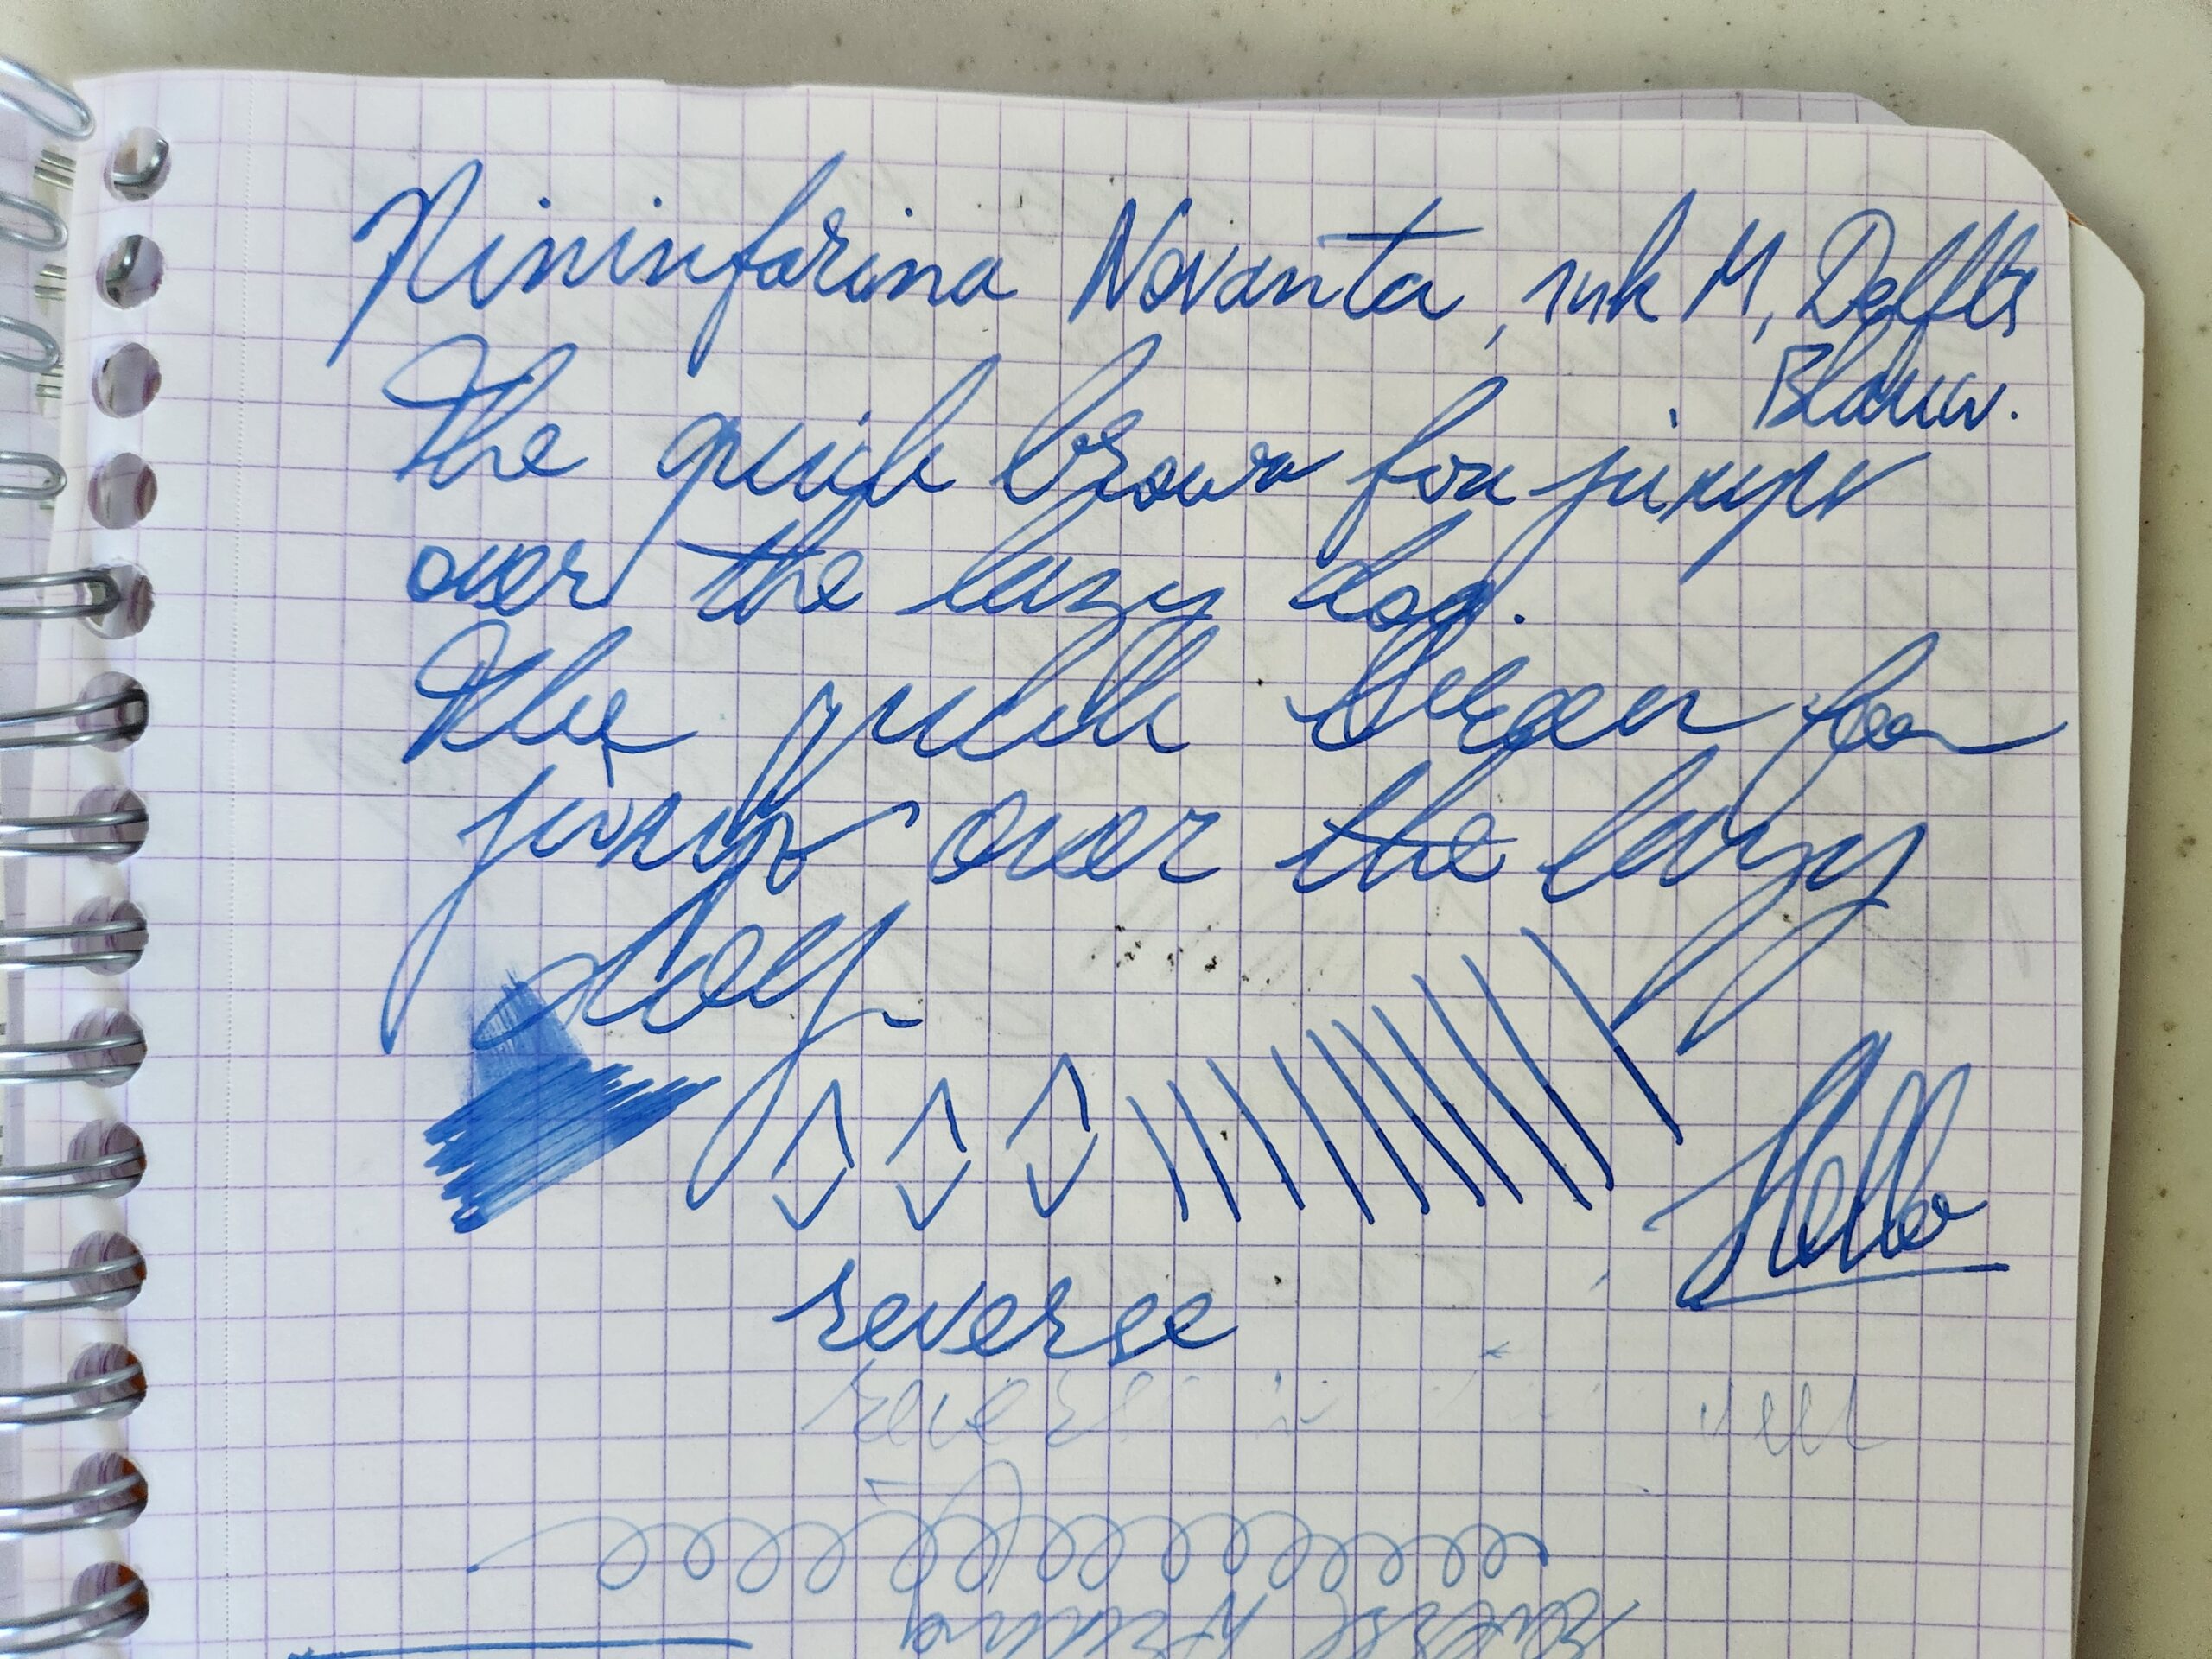 Pininfarina Novanta, ink M, Delfts
Blauw.
The quick brown fox jumps
over the lazy dog.
The quick brown fox
jumps over the lazy
dog.
Hello
reverse
reverse